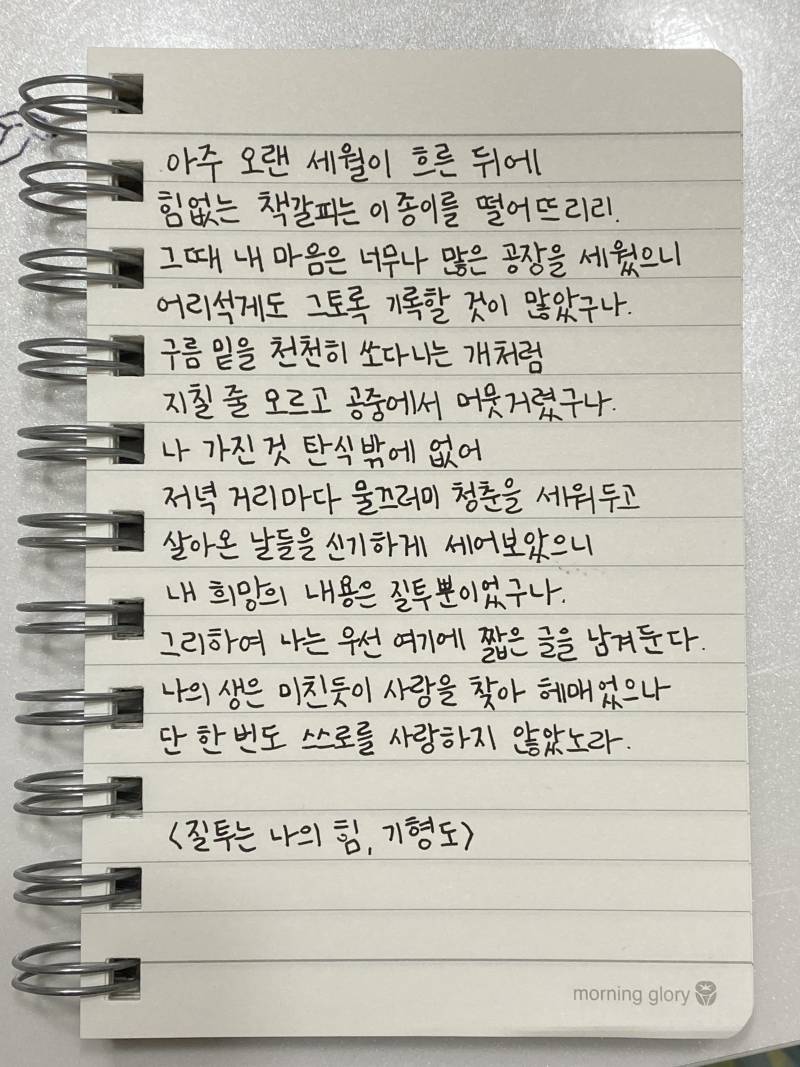 아주 오랜 세월이 흐른 뒤에
힘없는 책갈피는 이 종이를 떨어뜨리리.
그때 내 마음은 너무나 많은 공장을 세웠으니
어리석게도 그토록 기록할 것이 많았구나.
구름 밑을 천천히 쏘다니는 개처럼
지칠 줄 모르고 공중에서 머뭇거렸구나.
나 가진 것 탄식밖에 없어
저녁 거리마다 물끄러미 청춘을 세워두고
살아온 날들을 신기하게 세어보았으니
내 희망의 내용은 질투뿐이었구나.
그리하여 나는 우선 여기에 짧은 글을 남겨둔다.
나의 생은 미친듯이 사랑을 찾아 헤매었으나
단 한번도 스스로를 사랑하지 않았노라.
<질투는 나의 힘, 기형도>
morning glory